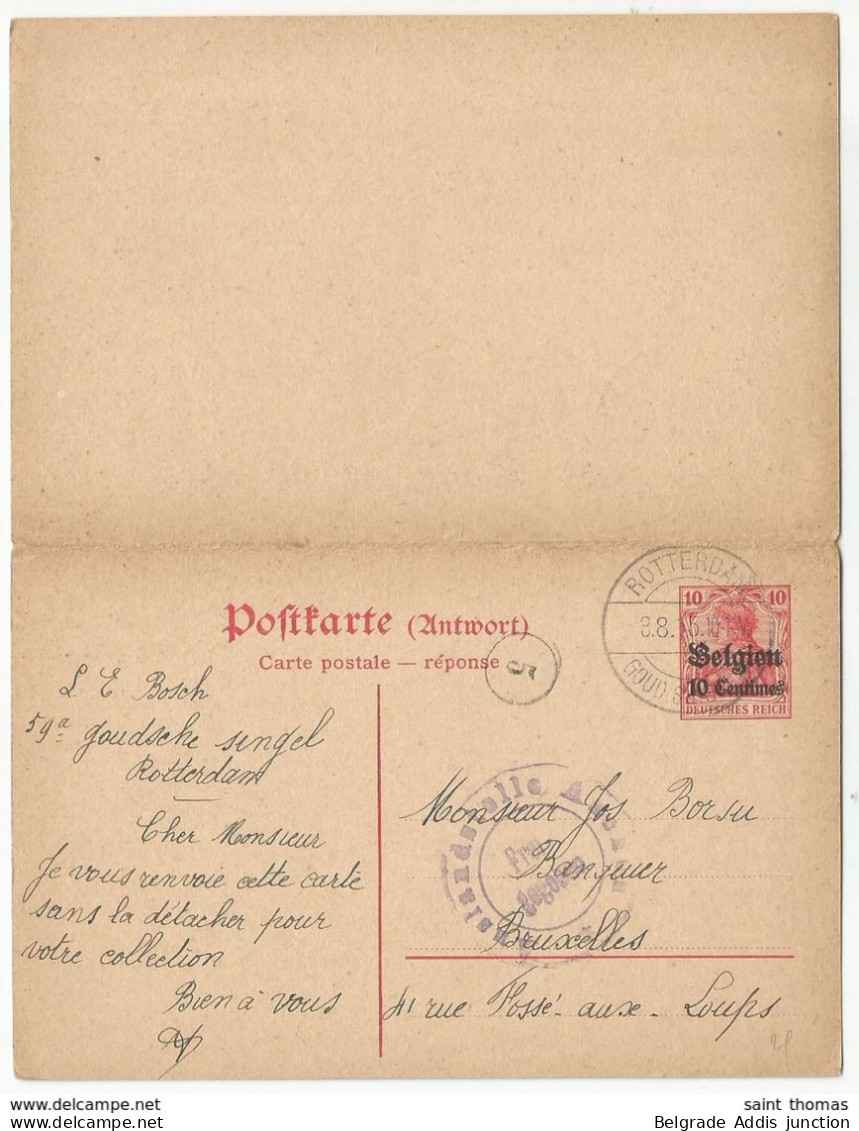 ROTTERDAM
8.8. 5.10-1.V
GOUD S
10 10
Belgien
10 Centimes
DEUTSCHES REICH
Postkarte (Antwort)
Carte postale — réponse
5
L E Bosch
59a goudsche singel
Rotterdam
Cher Monsieur
Je vous renvoie cette carte
sans la détacher pour
votre collection
Bien à vous
Monsieur Jos Borsu
Banquier
Bruxelles
41 rue Fossé-aux-Loups
saint thomas
Belgrade Addis junction